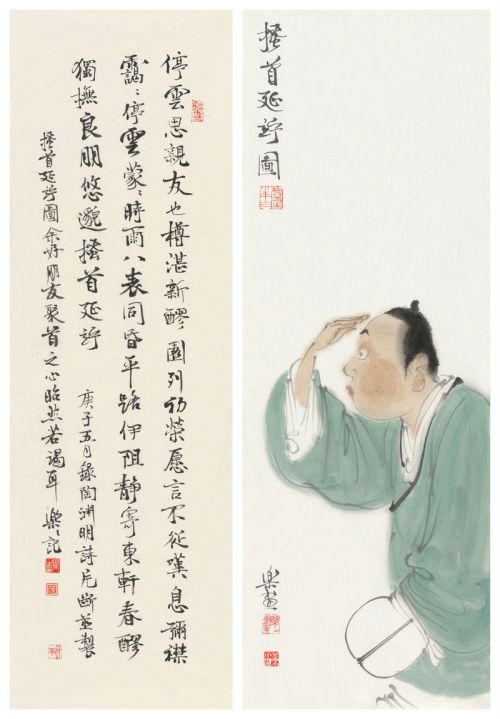 停雲思親友也樽湛新醪園列初榮愿言不從嘆息彌襟
靄〻停雲蒙〻時雨八表同昏平路伊阻靜寄東軒春醪
獨撫良朋悠邈搔首延竚 庚子五月錄陶淵明詩片斷並製
搔首延竚圖余好朋友聚首之心昭然若揭耳 樂〻記
搔首延竚圖
樂画